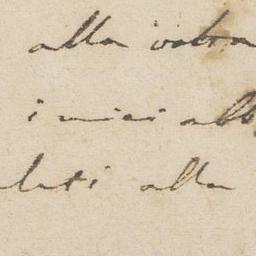 alla vostra
i miei abb
luti alla